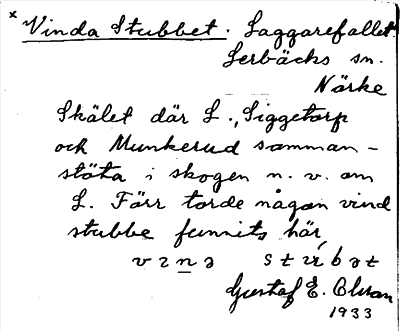 × Vinda Stubbet. Laggarefallet
Lerbäcks sn.
Närke
Skälet där L., Siggetorp
och Munkerud samman-
stöta i skogen n. v. om
L. Förr torde någon vind
stubbe funnits här,
Gustaf E. Olsson
1933